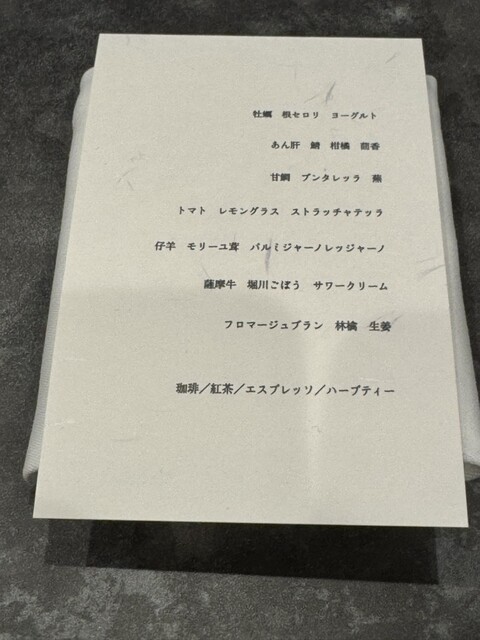 牡蠣　根セロリ　ヨーグルト
あん肝　鯖　柑橘　茴香
甘鯛　プンタレッラ　蕪
トマト　レモングラス　ストラッチャテッラ
仔羊　モリーユ茸　パルミジャーノレッジャーノ
薩摩牛　堀川ごぼう　サワークリーム
フロマージュブラン　林檎　生姜
珈琲／紅茶／エスプレッソ／ハーブティー